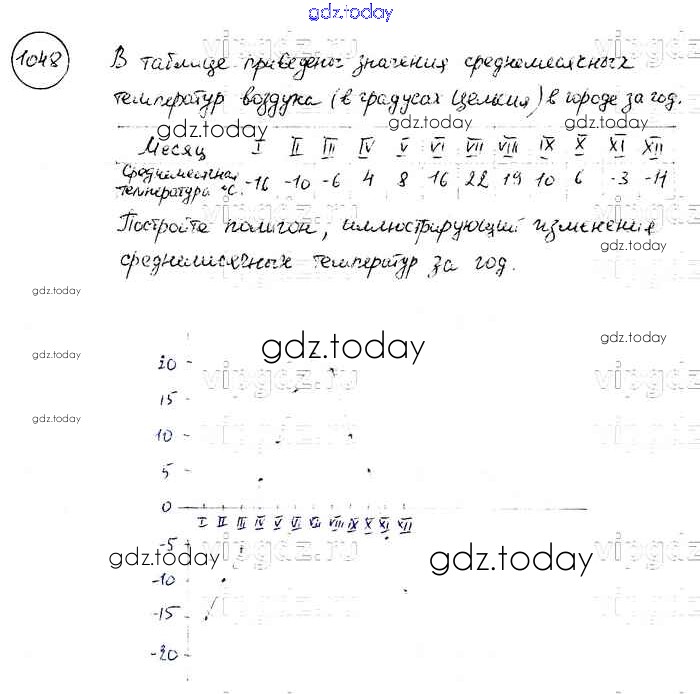 gdz.today
1048 В таблице приведены значения среднемесячных
температур воздуха (в градусах Цельсия) в городе за год.
gdz.today gdz.today
Месяц I II III IV V VI VII VIII IX X XI XII
Среднемесячная температура °C -16 -10 -6 4 8 16 22 19 10 6 -3 -11
Постройте полигон, иллюстрирующий изменения
среднемисячных температур за год.
gdz.today
gdz.today
gdz.today
gdz.today
gdz.today
vipgdz.ru
20
15
10
5
0
I II III IV V VI VII VIII IX X XI XII
-5
-10
-15
-20
gdz.today gdz.today